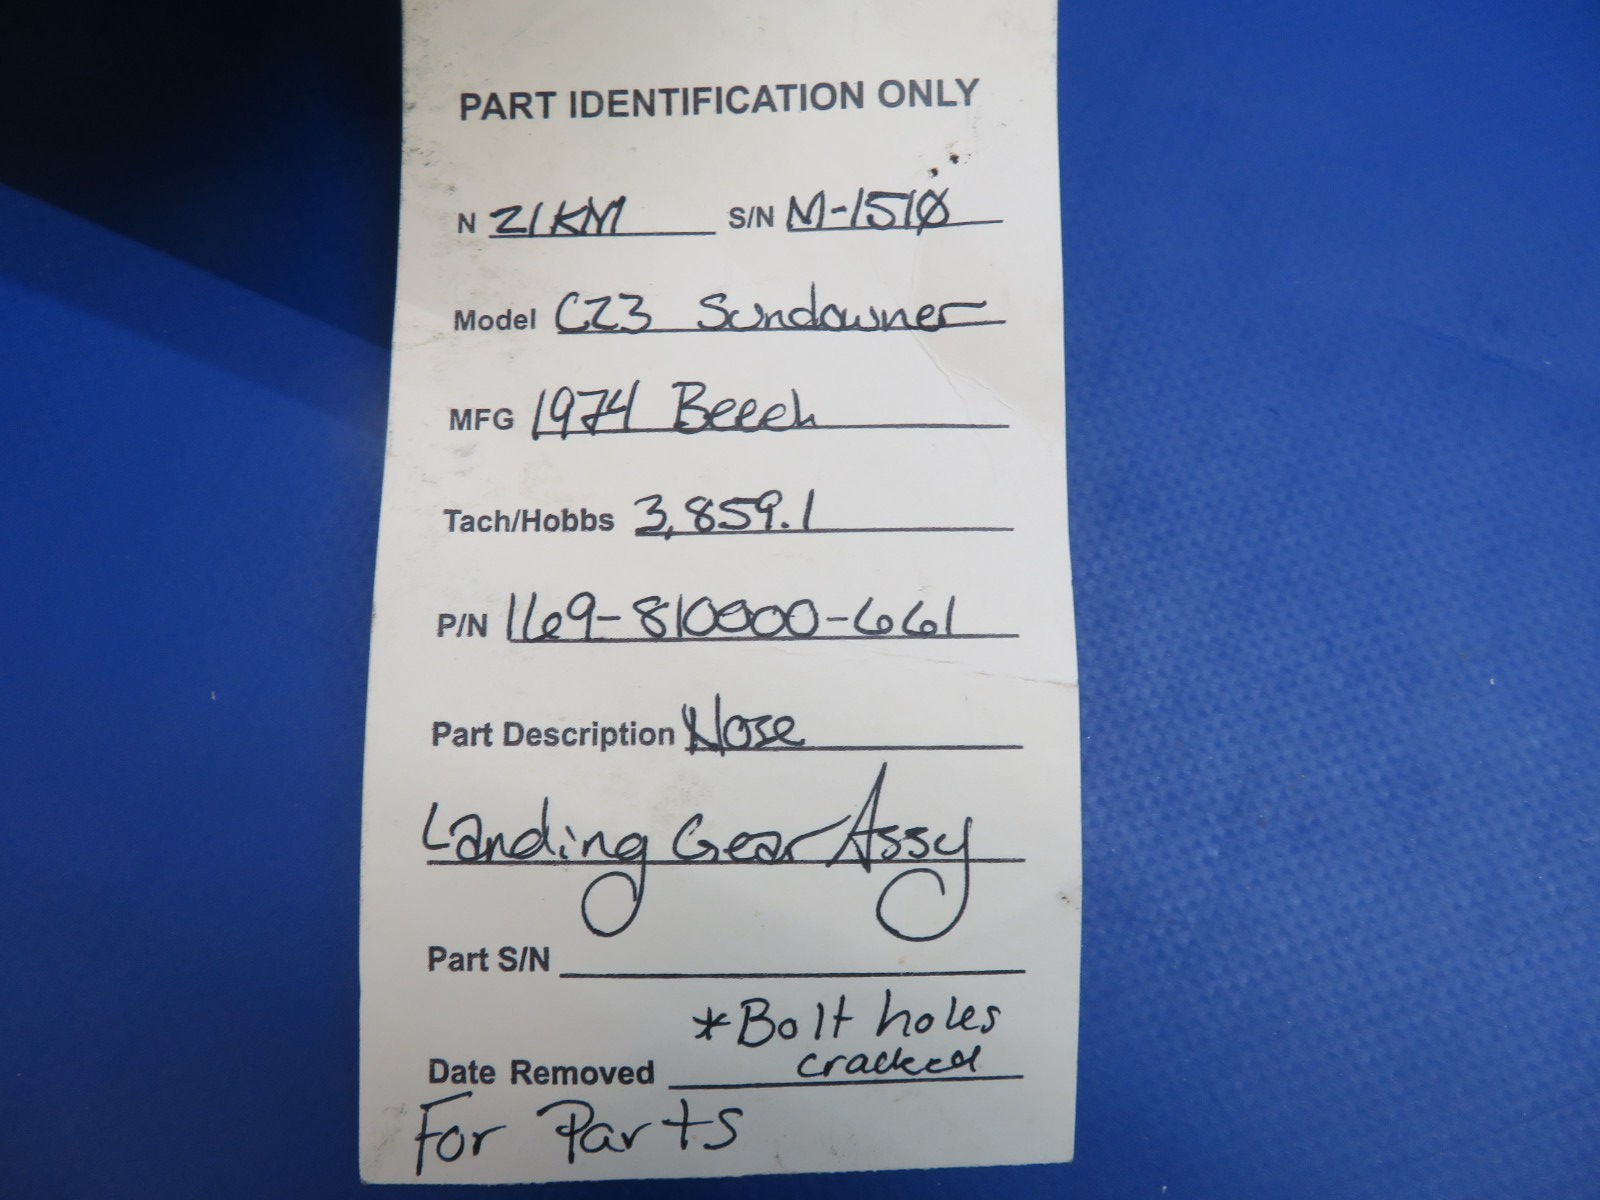 PART IDENTIFICATION ONLY
N 21KM S/N M-1510
Model C23 Sundowner
MFG 1974 Beech
Tach/Hobbs 3,859.1
P/N 169-810000-661
Part Description Nose
Landing Gear Assy
Part S/N
*Bolt holes
cracked
Date Removed
For Parts